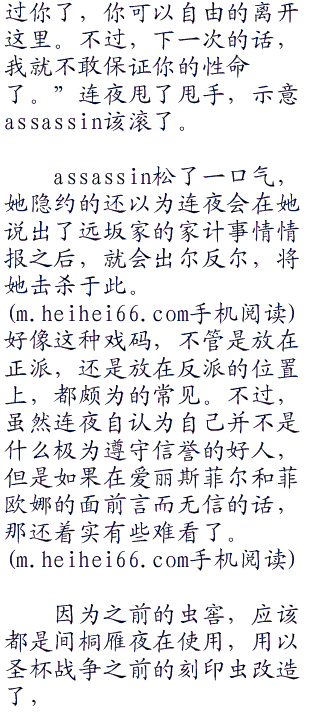 过你了，你可以自由的离开
这里。不过，下一次的话，
我就不敢保证你的性命
了。”连夜甩了甩手，示意
assassin该滚了。
assassin松了一口气，
她隐约的还以为连夜会在她
说出了远坂家的家计事情情
报之后，就会出尔反尔，将
她击杀于此。
(m.heihei66.com手机阅读)
好像这种戏码，不管是放在
正派，还是放在反派的位置
上，都颇为的常见。不过，
虽然连夜自认为自己并不是
什么极为遵守信誉的好人，
但是如果在爱丽斯菲尔和菲
欧娜的面前言而无信的话，
那还着实有些难看了。
(m.heihei66.com手机阅读)
因为之前的虫窖，应该
都是间桐雁夜在使用，用以
圣杯战争之前的刻印虫改造
了，